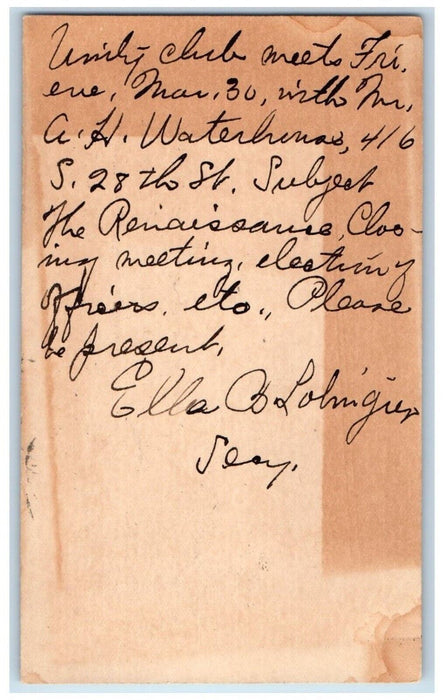 Unity club meets Fri.
eve, Mar. 30, with Mr.
A. H. Waterhouse, 416
S. 28th St. Subject
The Renaissance, Clos-
ing meeting, election of
officers, etc., Please
be present.
Ella B Lobingier
Secy.